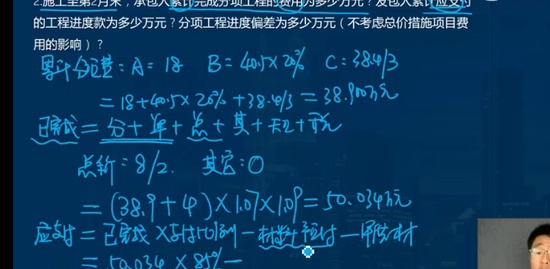 2.施工至第2月末，承包人累计完成分项工程的费用为多少万元？发包人累计应支付
的工程进度款为多少万元？分项工程进度偏差为多少万元（不考虑总价措施项目费
用的影响）？
累计分项费：A=18 B=40.5×20% C=38.4/3
=18+40.5×20%+38.4/3=38.900万元
已完成=分+单+点+其+
总价：8/2. 其它：0
=(38.9+4)×1.07×1.09=50.034万元
应支付=已完成×支付比例-
=50.034×85%-